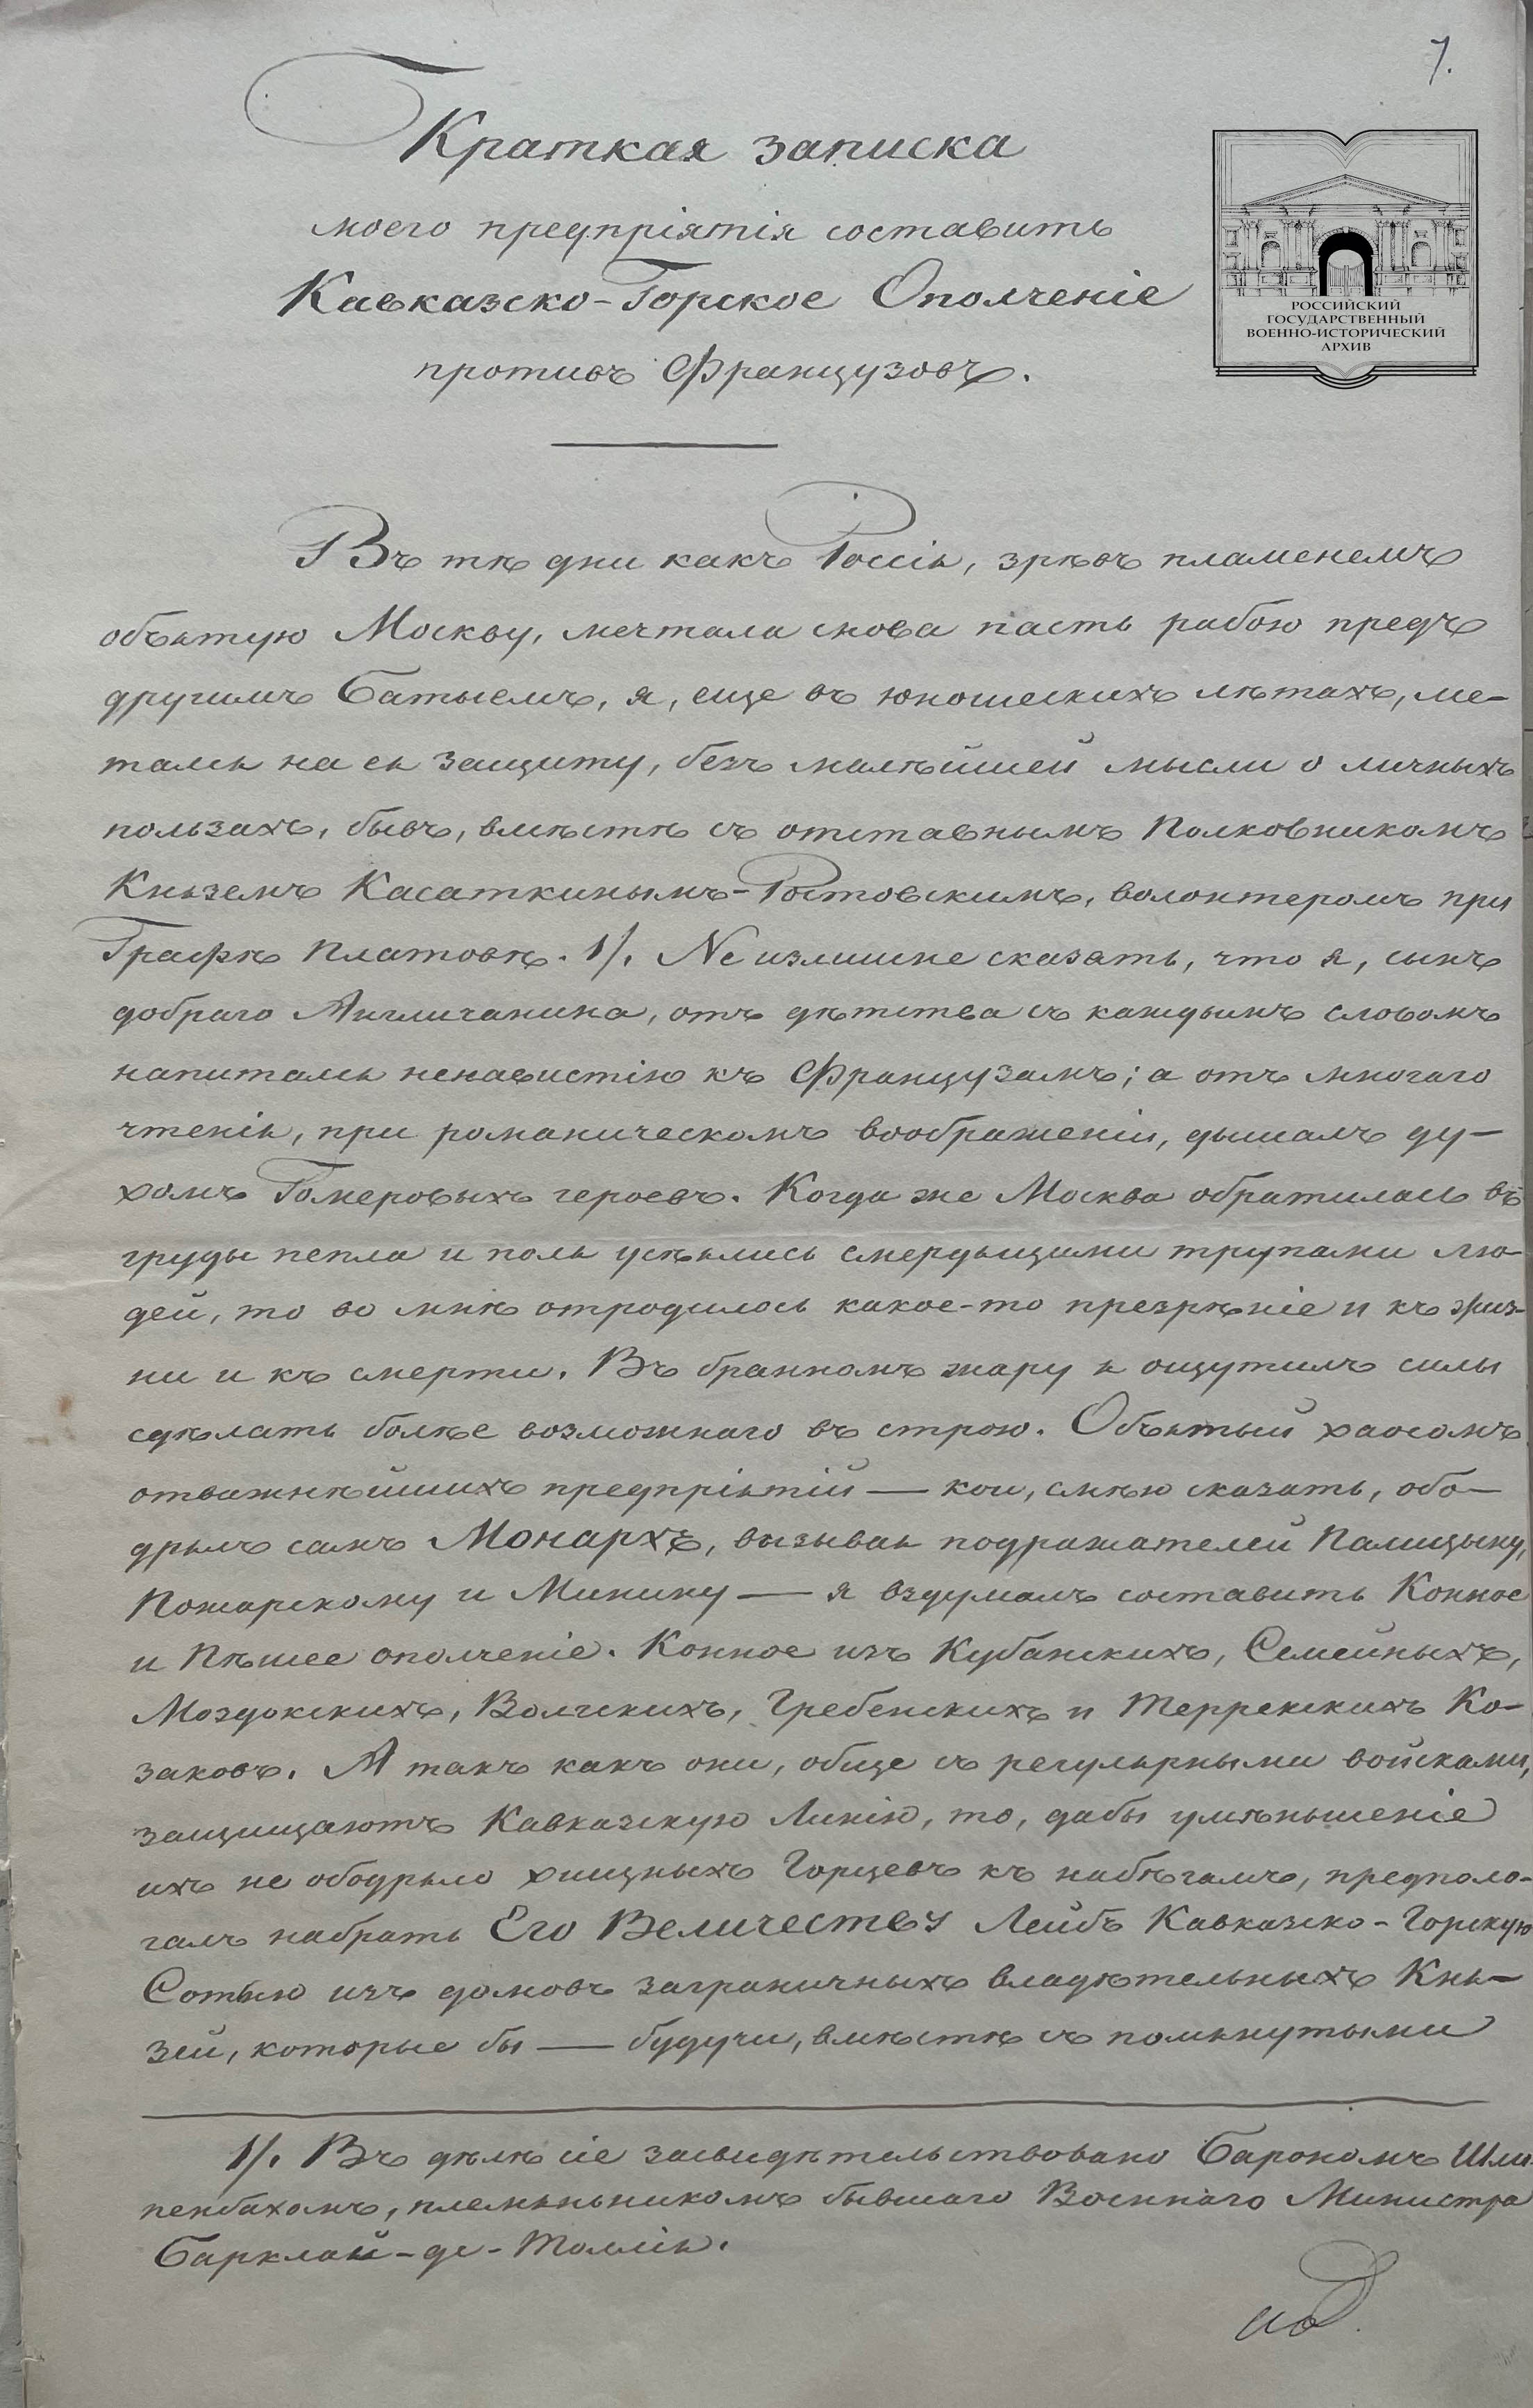 7.
Краткая записка
моего предпріятія составить
Кавказско-Горское Ополченіе
противъ Французовъ.
РОССИЙСКИЙ
ГОСУДАРСТВЕННЫЙ
ВОЕННО-ИСТОРИЧЕСКИЙ
АРХИВ
Въ тѣ дни какъ Россія, зрѣвъ пламенемъ
объятую Москву, мечтала снова пасть рабою предъ
другимъ Батыемъ, я, еще въ юношескихъ лѣтахъ, ме-
тался на ея защиту, безъ малѣйшей мысли о личныхъ
пользахъ, бывъ, вмѣстѣ съ отставнымъ Полковникомъ
Княземъ Касаткинымъ-Ростовскимъ, волонтеромъ при
Графѣ Платовѣ. 1/. Не излишне сказать, что я, сынъ
добраго Англичанина, отъ дѣтства съ каждымъ словомъ
напитался ненавистію къ Французамъ; а отъ многаго
чтенія, при романическомъ воображеніи, дышалъ ду-
хомъ Гомеровыхъ героевъ. Когда же Москва обратилась въ
груды пепла и поля усѣялись смердящими трупами лю-
дей, то во мнѣ отродилось какое-то презрѣніе и къ жиз-
ни и къ смерти. Въ бранномъ жару я ощутилъ силы
сдѣлать болѣе возможнаго въ строю. Объятый хаосомъ
отважнѣйшихъ предпріятій — кои, смѣю сказать, обо-
дрялъ самъ Монархъ, вызывая подражателей Палицыну,
Пожарскому и Минину — я вздумалъ составить Конное
и Пѣшее ополченіе. Конное изъ Кубанскихъ, Семейныхъ,
Моздокскихъ, Волгскихъ, Гребенскихъ и Террскихъ Ко-
заковъ. А такъ какъ они, обще съ регулярными войсками,
защищаютъ Кавказскую Линію, то, дабы умѣньшеніе
ихъ не ободряло хищныхъ Горцевъ къ набѣгамъ, предполо-
галъ набрать Его Величества Лейбъ Кавказско-Горскую
Сотню изъ домовъ заграничныхъ владѣтельныхъ Кня-
зей, которые бы — будучи, вмѣстѣ съ помянутыми
1/. Въ дѣлѣ сіе засвидѣтельствовано Барономъ Шли-
пенбахомъ, племянникомъ бывшаго Военнаго Министра
Барклай-де-Толлія.